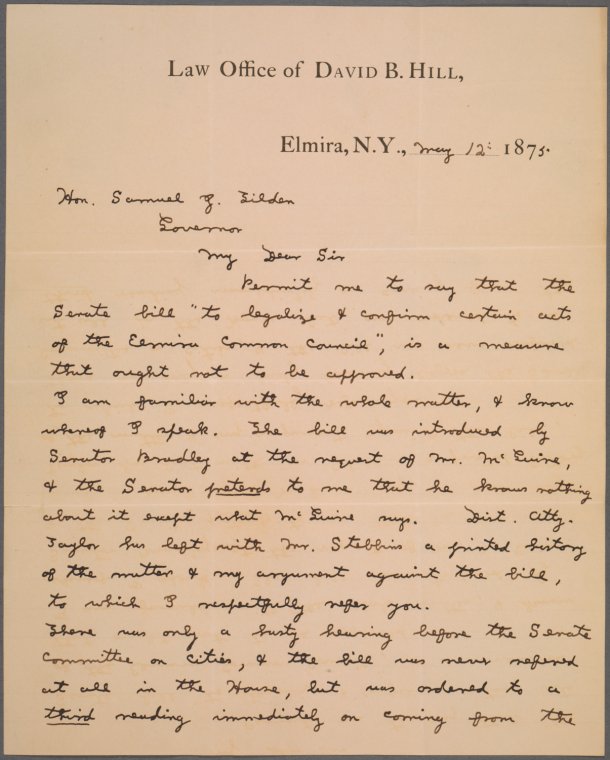 Law Office of DAVID B. HILL,
Elmira, N.Y., May 12: 1875.
Hon. Samuel J. Tilden
Governor
My Dear Sir
Permit me to say that the
Senate bill "to legalize & confirm certain acts
of the Elmira Common Council", is a measure
that ought not to be approved.
I am familiar with the whole matter, & know
whereof I speak. The bill was introduced by
Senator Bradley at the request of Mr. McGuire,
& the Senator pretends to me that he knows nothing
about it except what McGuire says. Dist. Atty.
Taylor has left with Mr. Stebbins a printed history
of the matter & my argument against the bill,
to which I respectfully refer you.
There was only a hasty hearing before the Senate
Committee on Cities, & the bill was never referred
at all in the House, but was ordered to a
third reading immediately on coming from the